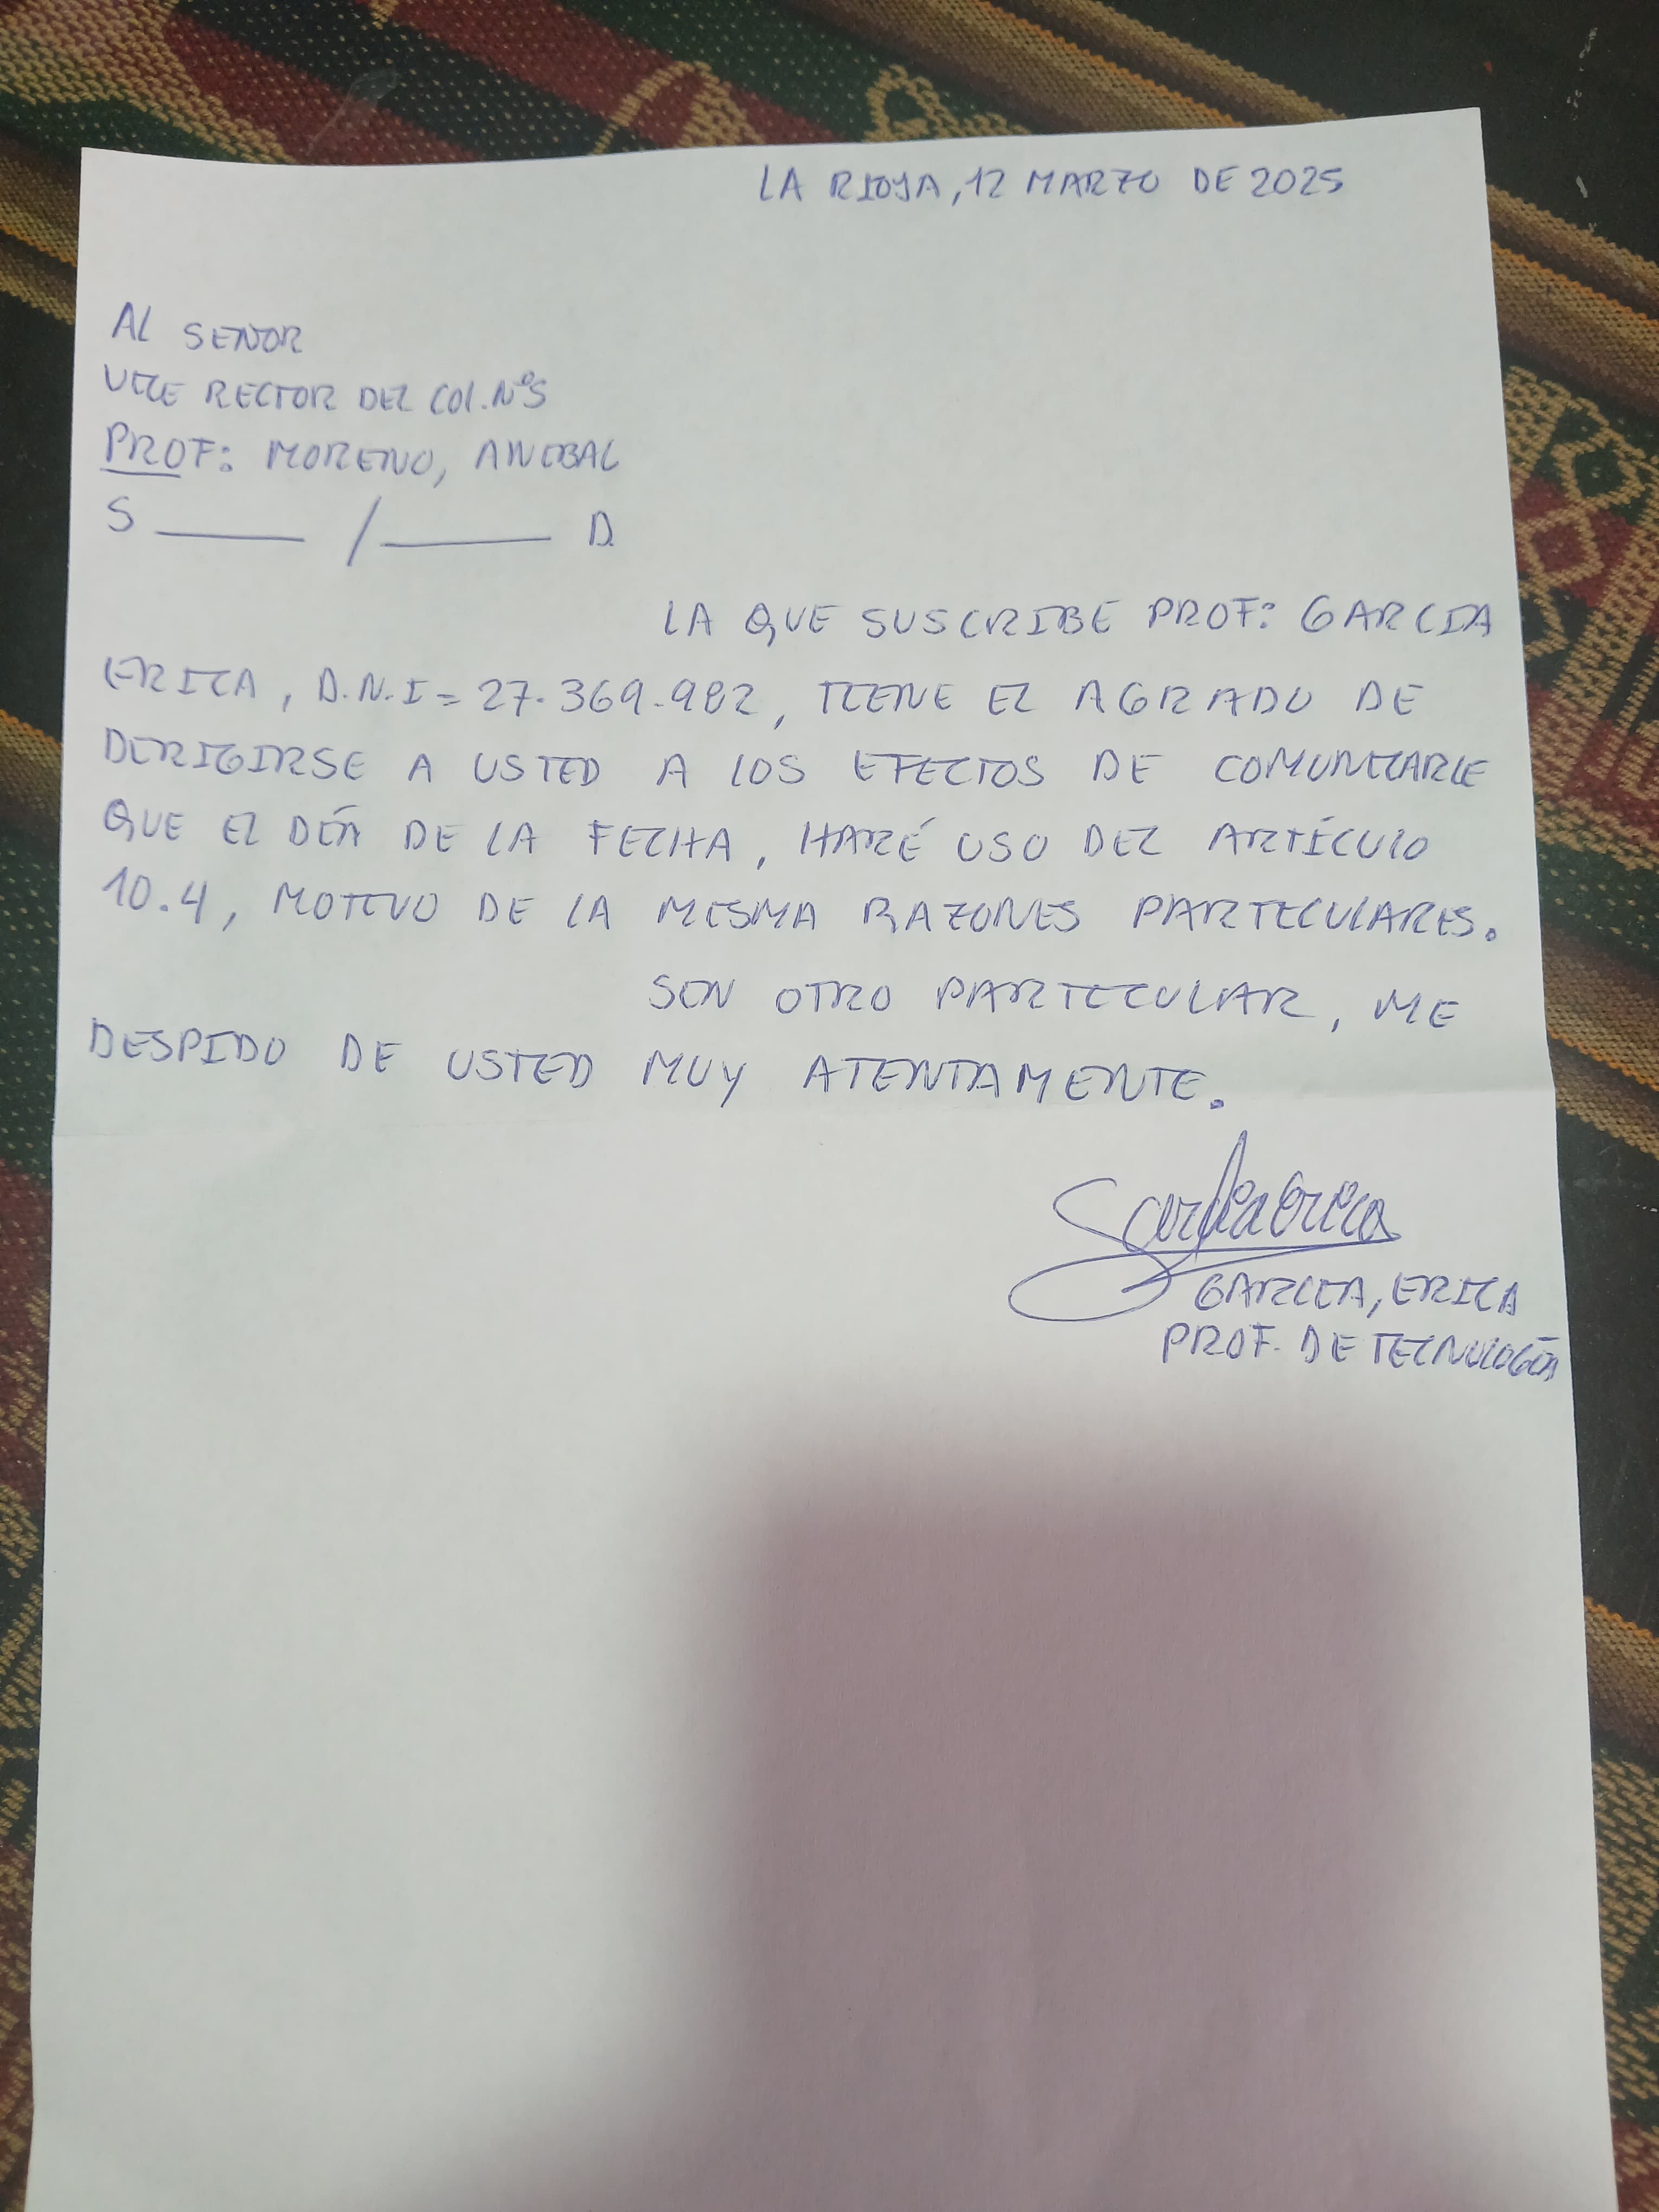 LA RIOJA, 12 MARZO DE 2025
AL SEÑOR
VICE RECTOR DEL COL. Nº5
PROF: MORENO, ANIBAL
S ____ / ____ D.
LA QUE SUSCRIBE PROF: GARCIA
ERICA, D.N.I = 27.369.982, TIENE EL AGRADO DE
DIRIGIRSE A USTED A LOS EFECTOS DE COMUNICARLE
QUE EL DÍA DE LA FECHA, HARÉ USO DEL ARTÍCULO
10.4, MOTIVO DE LA MISMA RAZONES PARTICULARES.
SIN OTRO PARTICULAR, ME
DESPIDO DE USTED MUY ATENTAMENTE.
Garcia Erica
GARCIA, ERICA
PROF. DE TECNOLOGÍA